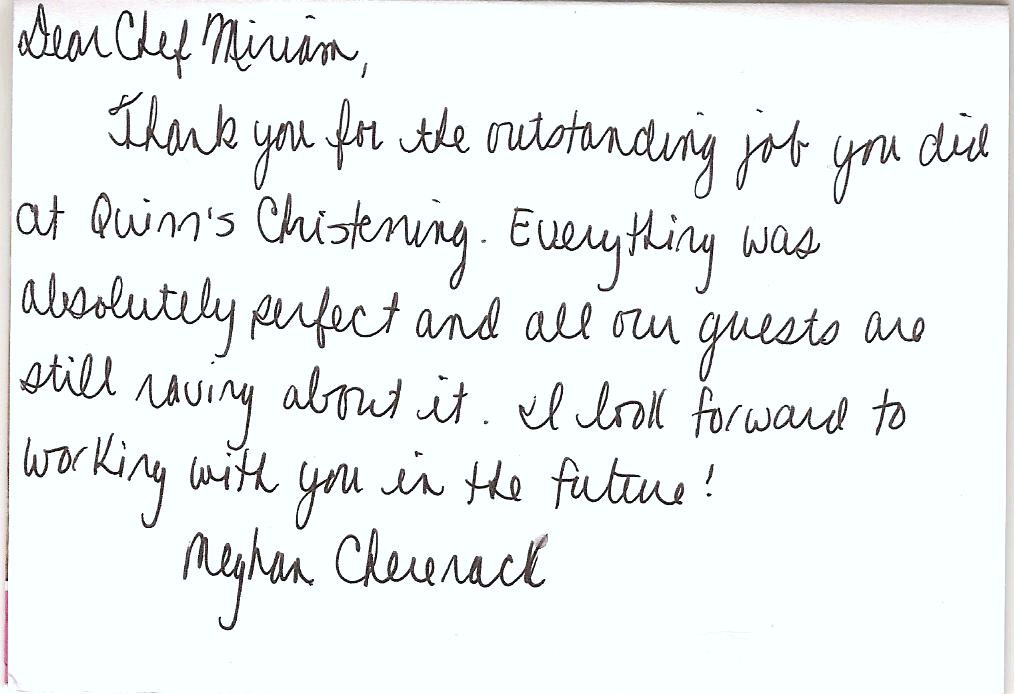 Dear Chef Miriam,
Thank you for the outstanding job you did
at Quinn's Christening. Everything was
absolutely perfect and all our guests are
still raving about it. I look forward to
working with you in the future!
Meghan